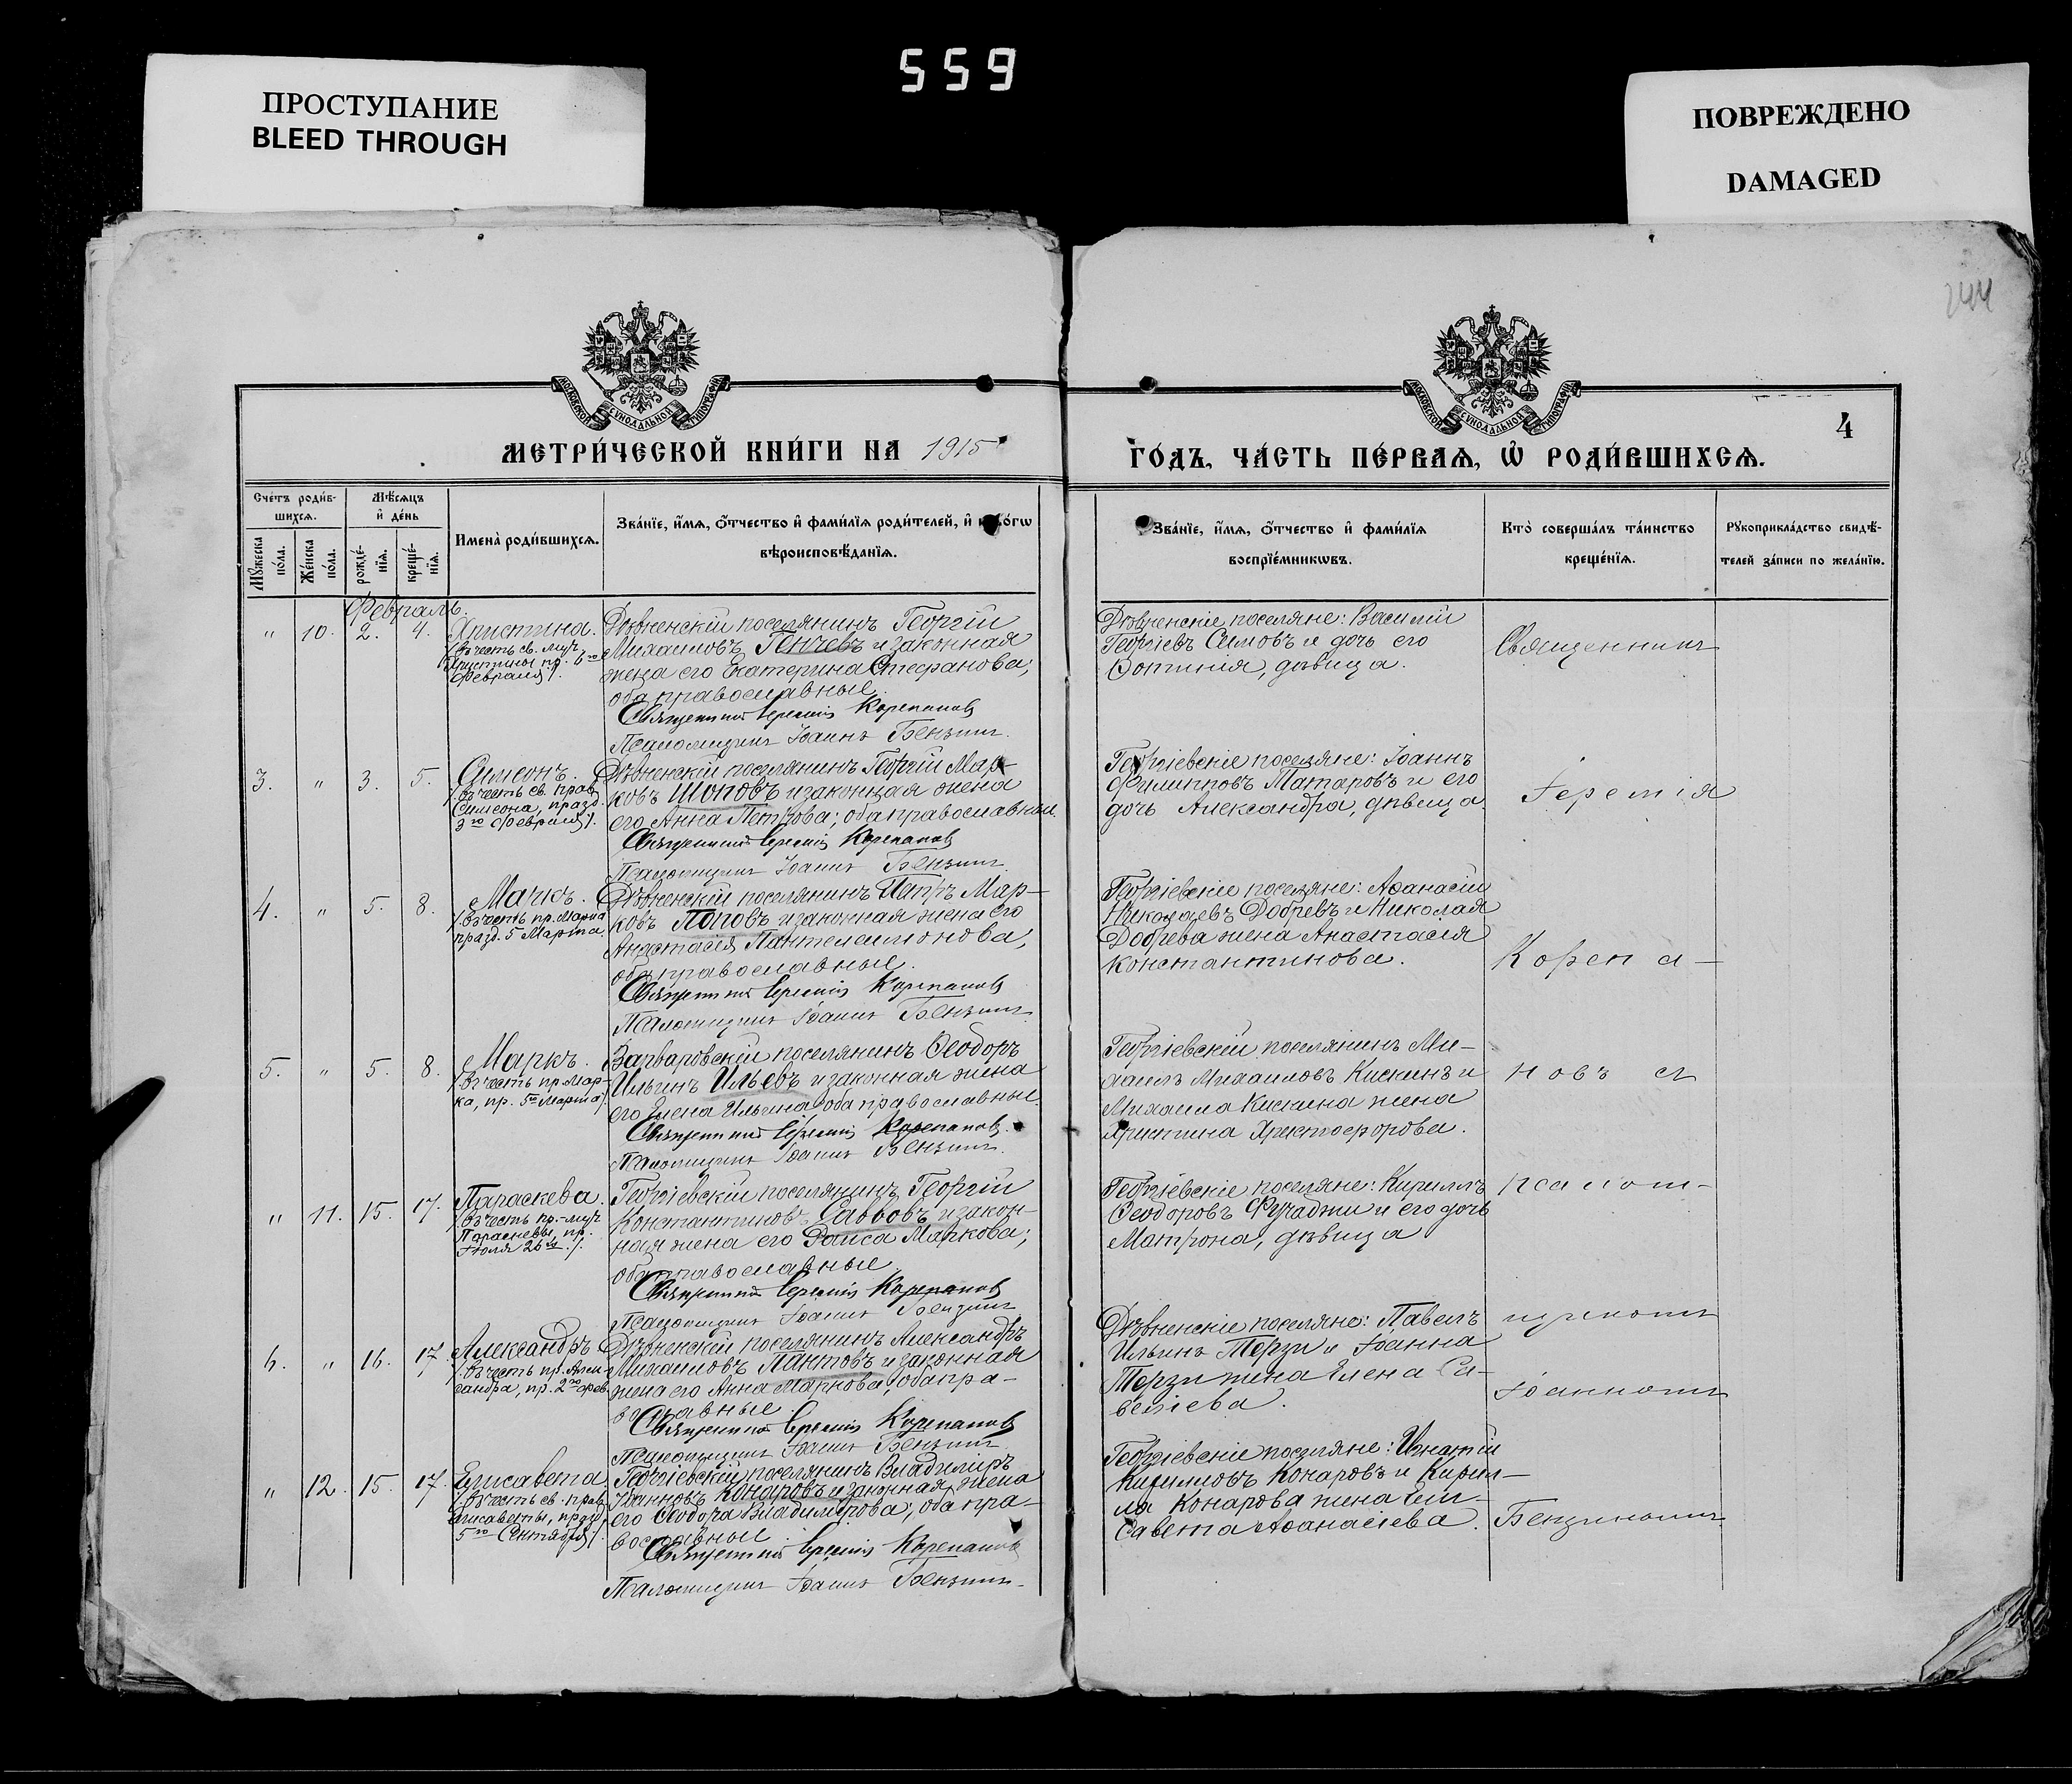 559
ПРОСТУПАНИЕ
BLEED THROUGH
ПОВРЕЖДЕНО
DAMAGED
244
МОСКОВСКОЙ СѴНОДАЛЬНОЙ ТИПОГРАФІИ
МОСКОВСКОЙ СѴНОДАЛЬНОЙ ТИПОГРАФІИ
4
МЕТРИ́ЧЕСКОЙ КНИ́ГИ НА 1915
ГО́ДЪ, ЧА́СТЬ ПЕ́РВАѦ, Ѽ РОДИ́ВШИХСѦ.
Сче́тъ роди́в-
шихсѧ.
Мѣ́сѧцъ
и҆ де́нь
Мꙋ́жеска по́ла.
Же́нска по́ла.
рожде́-
нїѧ.
креще́-
нїѧ.
Имена̀ роди́вшихсѧ.
Зва́нїе, и҆́мѧ, ѻ҆́тчество и҆ фами́лїѧ роди́телей, и҆
вѣроисповѣ́данїѧ.
Зва́нїе, и҆́мѧ, ѻ҆́тчество и҆ фами́лїѧ
воспрїе́мникѡвъ.
Кто̀ соверша́лъ та́инство
креще́нїѧ.
Рꙋкоприкла́дство свидѣ́-
телей за́писи по жела́нїю.
Февраль.
" 10. 2. 4. Христина.
въ честь св. муч.
Христины пр. 6го
Февраля).
Дѣвненскій поселянинъ Георгій
Михаиловъ Генчевъ и законная
жена его Екатерина Стефанова;
оба православные.
Священникъ Іеремія Корепановъ
Псаломщикъ Іоаннъ Бензинъ.
Дѣвненскіе поселяне: Василій
Георгіевъ Симовъ и дочь его
Фотинія, дѣвица.
Священникъ
3. " 3. 5. Симеонъ.
въ честь св. прав.
Симеона, празд.
3го Февраля).
Дѣвненскій поселянинъ Георгій Мар-
ковъ Шоповъ и законная жена
его Анна Петрова; оба православные.
Священникъ Іеремія Корепановъ
Псаломщикъ Іоаннъ Бензинъ
Георгіевскіе поселяне: Іоаннъ
Филипповъ Татаровъ и его
дочь Александра, дѣвица
Іеремія
4. " 5. 8. Маркъ.
въ честь пр. Марка
празд. 5 Марта.
Дѣвненскій поселянинъ Петръ Мар-
ковъ Поповъ и законная жена его
Анастасія Пантелеимонова;
оба православные.
Священникъ Іеремія Корепановъ
Псаломщикъ Іоаннъ Бензинъ
Георгіевскіе поселяне: Аѳанасій
Николаевъ Добревъ и Николая
Добрева жена Анастасія
Константинова.
Корепа-
5. " 5. 8. Маркъ.
въ честь пр. Мар-
ка, пр. 5го Марта)
Варваровскій поселянинъ Ѳеодоръ
Ильинъ Ильевъ и законная жена
его Елена Ильина оба православные.
Священникъ Іеремія Корепановъ.
Псаломщикъ Іоаннъ Бензинъ.
Георгіевскій поселянинъ Ми-
хаилъ Михаиловъ Кискинъ и
Михаила Кискина жена
Христина Христофорова.
новъ съ
" 11. 15. 17. Параскева.
въ честь пр.-муч.
Параскевы, пр.
Іюля 26го.).
Георгіевскій поселянинъ Георгій
Константиновъ Савовъ и закон-
ная жена его Раиса Маркова;
оба православные
Священникъ Іеремія Корепановъ
Псаломщикъ Іоаннъ Бензинъ
Георгіевскіе поселяне: Кириллъ
Ѳеодоровъ Фучаджи и его дочь
Матрона, дѣвица
псалом-
6. " 16. 17. Александръ
въ честь пр. Алек-
сандра, пр. 2го фев.
Дѣвненскій поселянинъ Александръ
Михаиловъ Пантовъ и законная
жена его Анна Маркова; оба пра-
вославные.
Священникъ Іеремія Корепановъ
Псаломщикъ Іоаннъ Бензинъ
Дѣвненскіе поселяне: Павелъ
Ильинъ Терзи и Іоанна
Терзи жена Елена Са-
веліева.
щикомъ
Іоанномъ
" 12. 15. 17. Елисавета.
въ честь св. прав.
Елисаветы, празд.
5го Сентября).
Георгіевскій поселянинъ Владимиръ
Іоанновъ Конаровъ и законная жена
его Ѳеодора Владимірова; оба пра-
вославные.
Священникъ Іеремія Корепановъ
Псаломщикъ Іоаннъ Бензинъ.
Георгіевскіе поселяне: Игнатій
Кирилловъ Конаровъ и Кирил-
ла Конарова жена Ели-
савета Аѳанасіева.
Бензиномъ